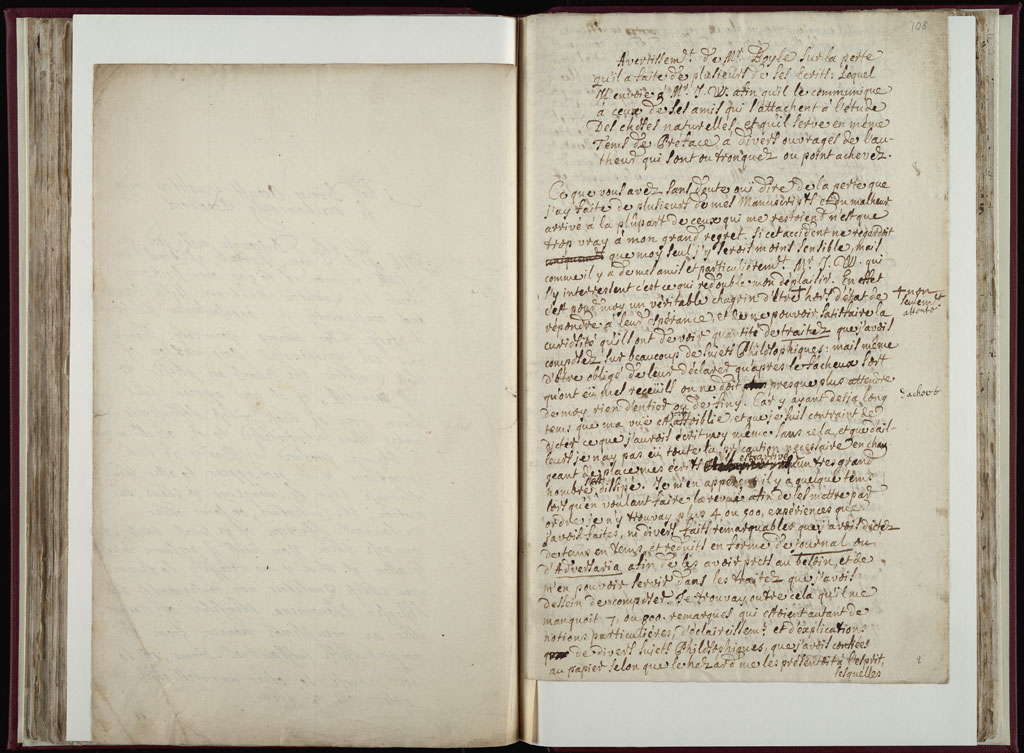 108
Avertissemt. de Mr. Boyle sur la perte
qu'il a faite de plusieurs de ses écrits: Lequel
Mr. J. W. afin qu'il le communique
a ceux de ses amis qui s'attachent à l'étude
Des choses naturelles, et qu'il serve en même
Tems de Preface a divers ouvrages de l'au-
theur qui sont ou tronquez ou point achevez.
Ce que vous avez sans doute oüi dire de la perte que
j'ay faite de plusieurs de mes Manuscripts et du malheur
arrivé à la plûpart de ceux qui me restent n'est que
trop vray à mon grand regret. Si cet accident ne regardoit
que moy seul j'y serois moins sensible, mais
comme il y a de mes amis et particulieremt. Mr. J. W. qui
s'y interessent c'est ce qui redouble mon déplaisir. En effet
c'est pour moy un véritable chagrin d'être + hors d'état de
répondre à leur espérance, et de ne pouvoir satisfaire la
+ non
seulemt.
curiosité qu'ils ont de voir quantité de traitez que j'avois
composez sur beaucoup de sujets Philosophiques: mais même
d'être obligé de leur déclarer qu'apres le facheux sort
qu'ont eu mes receüils on ne doit presque plus attendre
de moy rien d'entier ou de finy. Car y ayant desja long
d'achevé
tems que ma vüe est affoiblie et que je suis contraint de
dicter ce que j'aurois écrit moy même sans cela, et que d'ail-
leurs je n'ay pas eu toute la précaution necessaire en chan
geant de place mes écrits un tres grand
nombre dissipé. Je m'en apperçus il y a quelque tems
lorsqu'en voulant faire la reveüe afin de les mettre par
ordre je n'y trouvay plus 4 ou 500, expériences que
j'avois faites, ni divers faits remarquables que j'avois dictez
de tems en tems, et reduits en forme de journal ou
d'Adversaria afin de les avoir prets au besoin, et de
m'en pouvoir servir dans les traitez que j'avois
dessein de composer. Je trouvay outre cela qu'il me
manquoit 7, ou 800. remarques qui estoient autant de
notions particulières, d'éclaircissemt. et d'explications
de divers sujets Philosophiques, que j'avois confiées
au papier selon que le hazard me les présentoit à l'esprit,
lesquelles